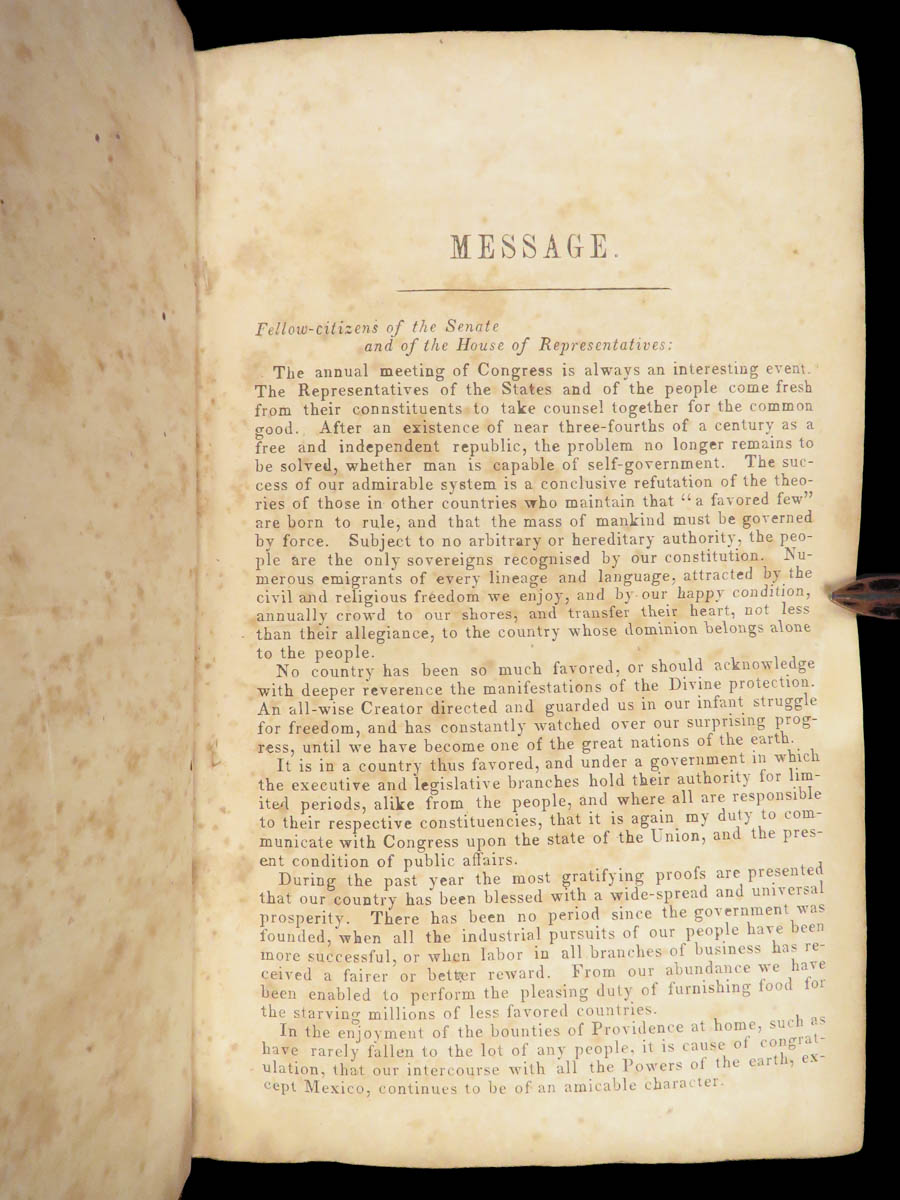 MESSAGE.
Fellow-citizens of the Senate
and of the House of Representatives:
The annual meeting of Congress is always an interesting event.
The Representatives of the States and of the people come fresh
from their connstituents to take counsel together for the common
good. After an existence of near three-fourths of a century as a
free and independent republic, the problem no longer remains to
be solved, whether man is capable of self-government. The suc-
cess of our admirable system is a conclusive refutation of the theo-
ries of those in other countries who maintain that "a favored few"
are born to rule, and that the mass of mankind must be governed
by force. Subject to no arbitrary or hereditary authority, the peo-
ple are the only sovereigns recognised by our constitution. Nu-
merous emigrants of every lineage and language, attracted by the
civil and religious freedom we enjoy, and by our happy condition,
annually crowd to our shores, and transfer their heart, not less
than their allegiance, to the country whose dominion belongs alone
to the people.
No country has been so much favored, or should acknowledge
with deeper reverence the manifestations of the Divine protection.
An all-wise Creator directed and guarded us in our infant struggle
for freedom, and has constantly watched over our surprising prog-
ress, until we have become one of the great nations of the earth.
It is in a country thus favored, and under a government in which
the executive and legislative branches hold their authority for lim-
ited periods, alike from the people, and where all are responsible
to their respective constituencies, that it is again my duty to com-
municate with Congress upon the state of the Union, and the pres-
ent condition of public affairs.
During the past year the most gratifying proofs are presented
that our country has been blessed with a wide-spread and universal
prosperity. There has been no period since the government was
founded, when all the industrial pursuits of our people have been
more successful, or when labor in all branches of business has re-
ceived a fairer or better reward. From our abundance we have
been enabled to perform the pleasing duty of furnishing food for
the starving millions of less favored countries.
In the enjoyment of the bounties of Providence at home, such as
have rarely fallen to the lot of any people, it is cause of congrat-
ulation, that our intercourse with all the Powers of the earth, ex-
cept Mexico, continues to be of an amicable character.